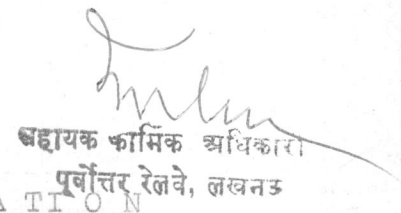 सहायक कार्मिक अधिकारी
पूर्वोत्तर रेलवे, लखनऊ
A T I O N